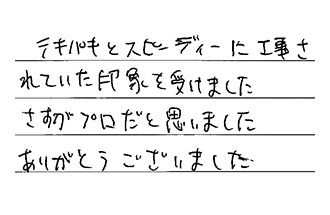 テキパキとスピーディーに工事さ
れていた印象を受けました
さすがプロだと思いました
ありがとうございました